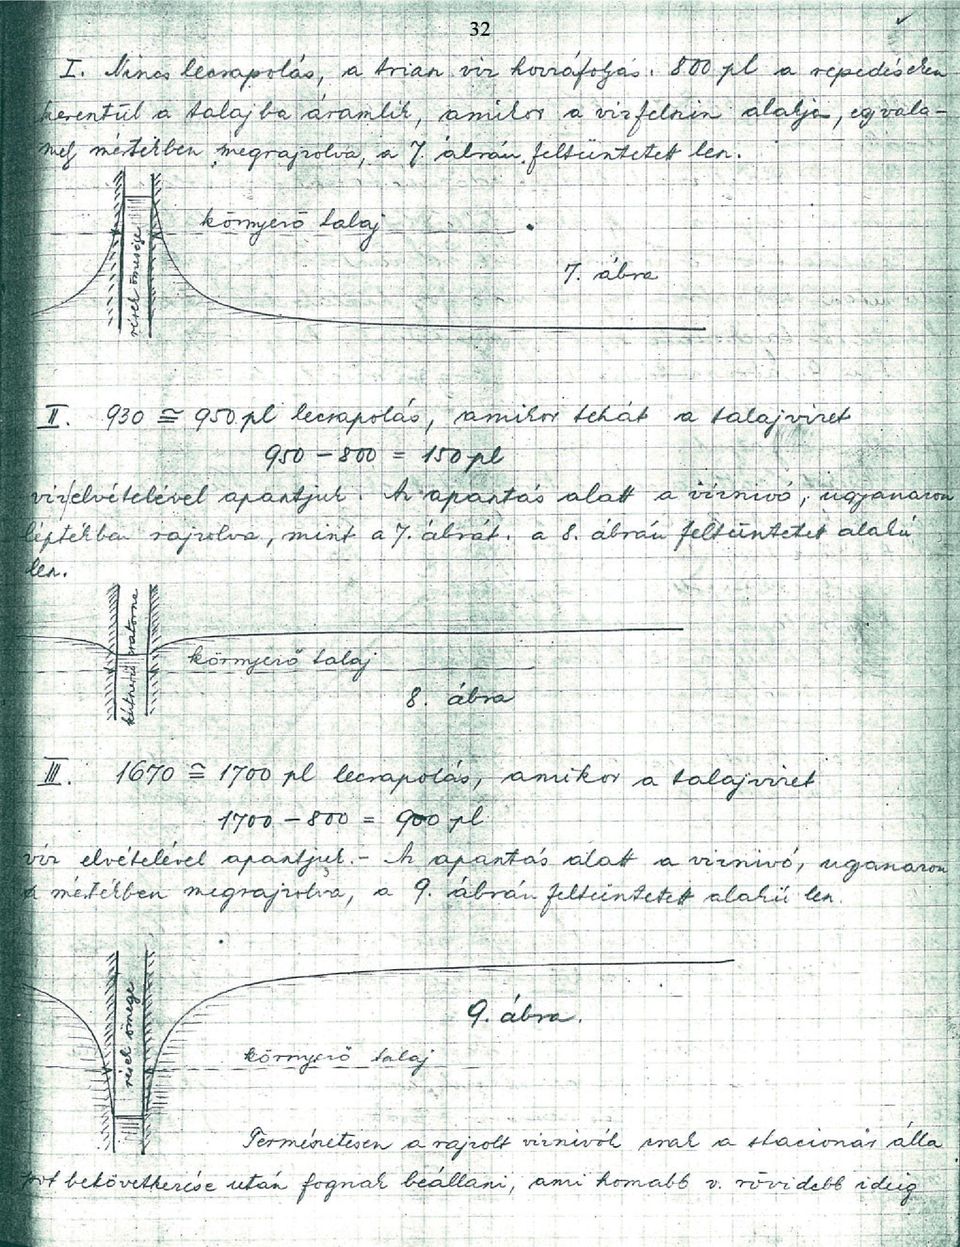 32
I. Nincs lecsapolás, a triasz víz hozzáfolyás. 800 pl a repedéseken
keresztül a talajba áramlik, amikor a vízfelszín alakja, egy vala-
mely mértékben megrajzolva, a 7. ábrán feltüntetett lesz.
környező talaj
7. ábra
rések
II. 930 ≅ 950 pl lecsapolás, amikor tehát a talajvizet
950 - 800 = 150 pl
vízelvételével apasztjuk. Az apasztás alatt a víznívó, ugyanazon
léptékben rajzolva, mint a 7. ábrát. a 8. ábrán feltüntetett alakú
lesz.
környező talaj
8. ábra
III. 1670 ≅ 1700 pl lecsapolás, amikor a talajvizet
1700 - 800 = 900 pl
víz elvételével apasztjuk.- Az apasztás alatt a víznívó, ugyanazon
a mértékben megrajzolva, a 9. ábrán feltüntetett alakú lesz.
rések
9. ábra.
környező talaj
Természetesen a rajzolt víznívók csak a stacionár álla
pot bekövetkezése után fognak beállani, ami hosszabb v. rövidebb ideig